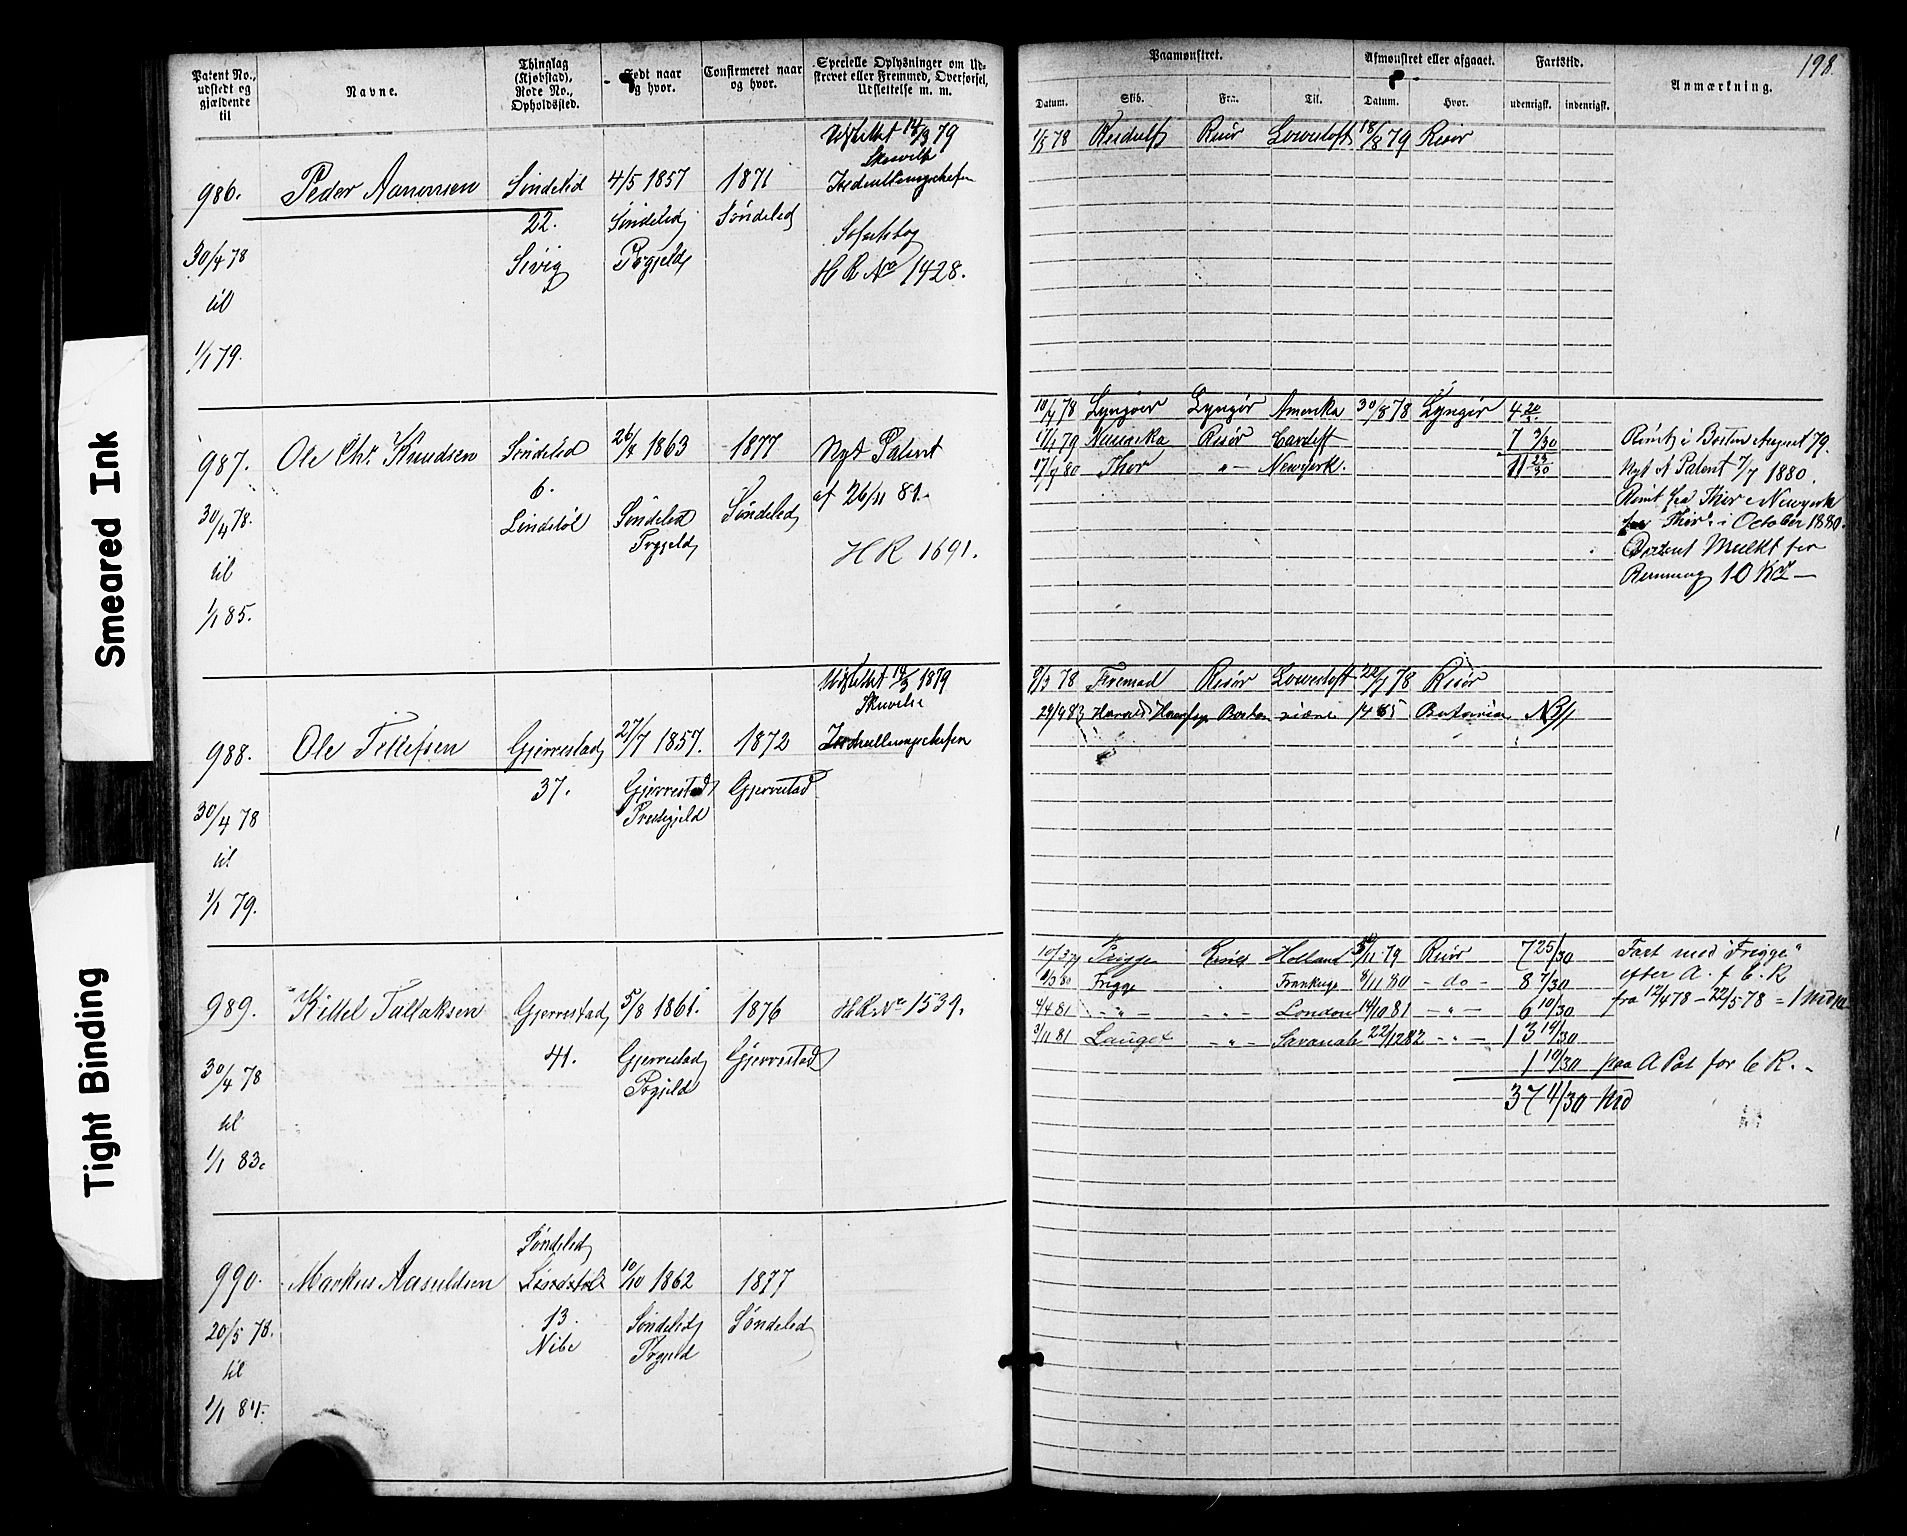 Smeared Ink
Tight Binding
198.
Patent No., udstedt og gjældende til
Navne.
Thinglag (Kjøbstad), Rode No., Opholdssted.
Født naar og hvor.
Confirmeret naar og hvor.
Specielle Oplysninger om Udskrevet eller Fremmed, Overførsel, Udslettelse m. m.
Paamønstret.
Datum.
Skib.
Fra.
Til.
Afmønstret eller afgaaet.
Datum.
Hvor.
Fartstid.
udenrigsk.
indenrigsk.
Anmærkning.
986.
30/4 78
til
1/1 79.
Peder Aanonsen
Søndeled
22.
Sivig
4/5 1857
Søndeled
Prgjeld
1871
Søndeled
Udslettet 14/3 79
Indrulleringschefen
HR No 1428.
1/5 78
Risør
Lowestoft
18/8 79
Risør
987.
30/4 78.
til
1/1 85.
Ole Chr. Knudsen
Søndeled
6.
Lindstøl
26/4 1863
Søndeled
Prgjeld
1877
Søndeled
Nyt Patent
af 26/11 81.
HR 1691.
10/4 78 Lyngøer Lyngør Amerika 30/8 78 Lyngør 4 20/30
Risør Cardiff 7 3/30
17/7 80 Thor -"- Newyork. 11 23/30
Rømt i Boston August 79.
Nyt A Patent 7/7 1880.
Rømt fra Thor i Newyork
Thor i October 1880.
Betalt Mulkt for
Rømning 10 Kr —
988.
30/4 78
til
1/1 79.
Ole Tellefsen
Gjerrestad
37.
27/7 1857.
Gjerrestad
Prestegjeld
1872
Gjerrestad
Udslettet 14/3 1879
Skrivelse
Indrulleringschefen
Fremad Risør Lowestoft 78 Risør
29/9 83 Harald Haarfager Boston Batavia
989.
30/4 78
til
1/1 83.
Kittel Tallaksen
Gjerrestad
41.
5/8 1861.
Gjerrestad
Prgjeld
1876
Gjerrestad
H.R. No 1539.
10/3 79 Frigge Risør Holland 79 Risør 7 25/30
Frigge 8/11 80 -do- 8 7/30
4/4 81 -"- -"- London 14/10 81 -"- 6 10/30
3/11 81 -"- Savanah 22/12 82 -"- 13 19/30
1 10/30 paa A Pat for E. R.
37 4/30 Md
Fart med "Frigge"
efter A. f E. R
fra 12/4 78 - 22/5 78 =
990.
20/5 78.
til
1/1 84.
Markus Aasuldsen
Søndeled
13.
Nibe
10/10 1862
Søndeled
Prgjeld
1877
Søndeled